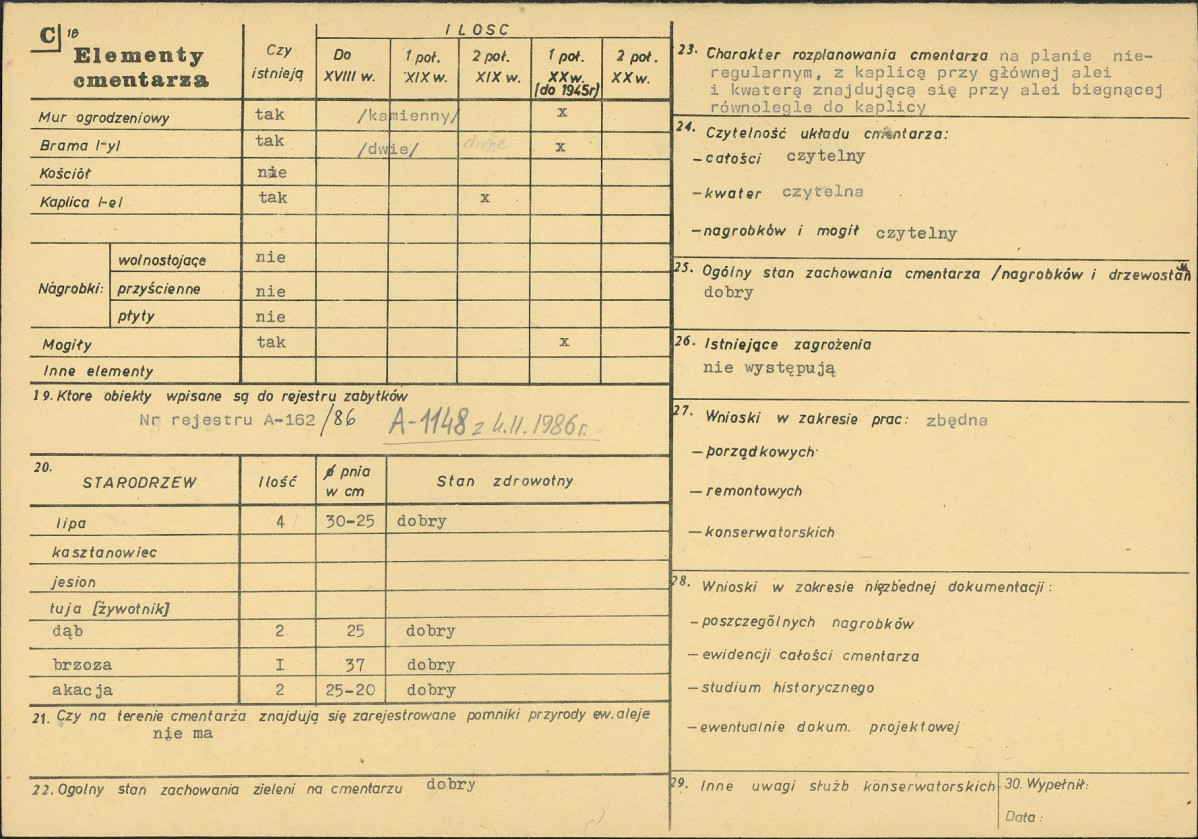 C 18
Elementy
cmentarza
Czy
istnieją
ILOSC
Do
XVIII w.
1 poł.
XIX w.
2 poł.
XIX w.
1 poł.
XX w.
(do 1945r)
2 poł.
XX w.
Mur ogrodzeniowy tak /kamienny/ x
Brama l-yl tak /dwie/ dwie x
Kościół nie
Kaplica l-el tak x
Nagrobki:
wolnostojące nie
przyścienne nie
płyty nie
Mogiły tak x
Inne elementy
19. Ktore obiekty wpisane są do rejestru zabytków
Nr rejestru A-162/86 A-1148 z 4.II.1986r.
20.
STARODRZEW Ilość ø pnia
w cm Stan zdrowotny
lipa 4 30-25 dobry
kasztanowiec
jesion
tuja [żywotnik]
dąb 2 25 dobry
brzoza I 37 dobry
akacja 2 25-20 dobry
21. Czy na terenie cmentarża znajdują się zarejestrowane pomniki przyrody ew. aleje
nie ma
22. Ogolny stan zachowania zieleni na cmentarzu dobry
23. Charakter rozplanowania cmentarza na planie nie-
regularnym, z kaplicą przy głównej alei
i kwaterą znajdującą się przy alei biegnącej
równolegle do kaplicy
24. Czytelność układu cmentarza:
-całości czytelny
-kwater czytelna
-nagrobków i mogił czytelny
25. Ogólny stan zachowania cmentarza /nagrobków i drzewostan
dobry
26. Istniejące zagrożenia
nie występują
27. Wnioski w zakresie prac: zbędna
-porządkowych
-remontowych
-konserwatorskich
28. Wnioski w zakresie niezbednej dokumentacji:
-poszczególnych nagrobków
-ewidencji całości cmentarza
-studium historycznego
-ewentualnie dokum. projektowej
29. Inne uwagi służb konserwatorskich
30. Wypełnił:
Data: